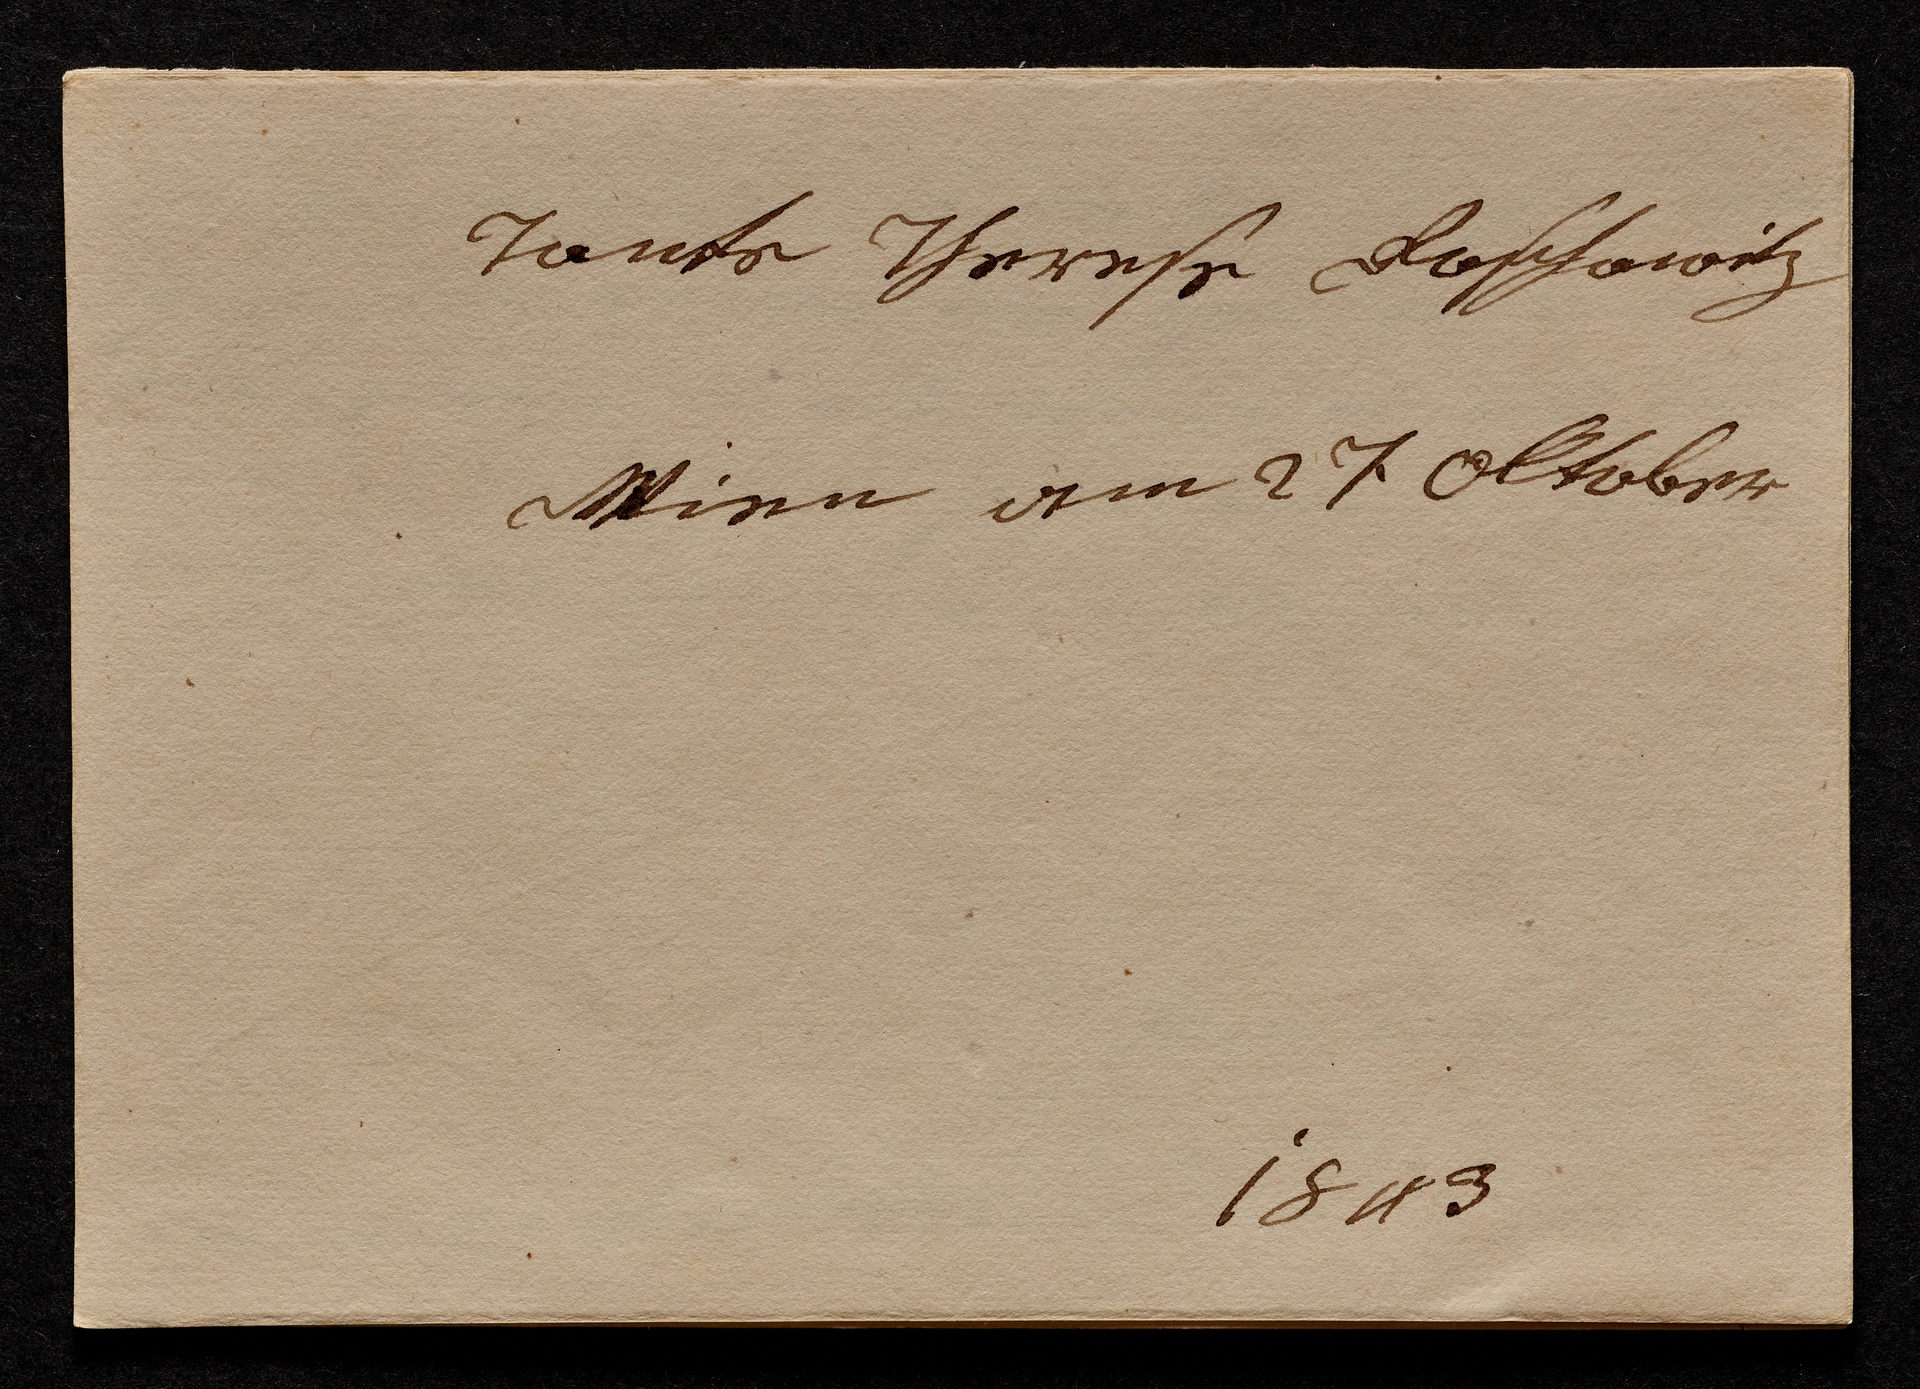 Tante Therese
Wien am 27 Oktober
1843